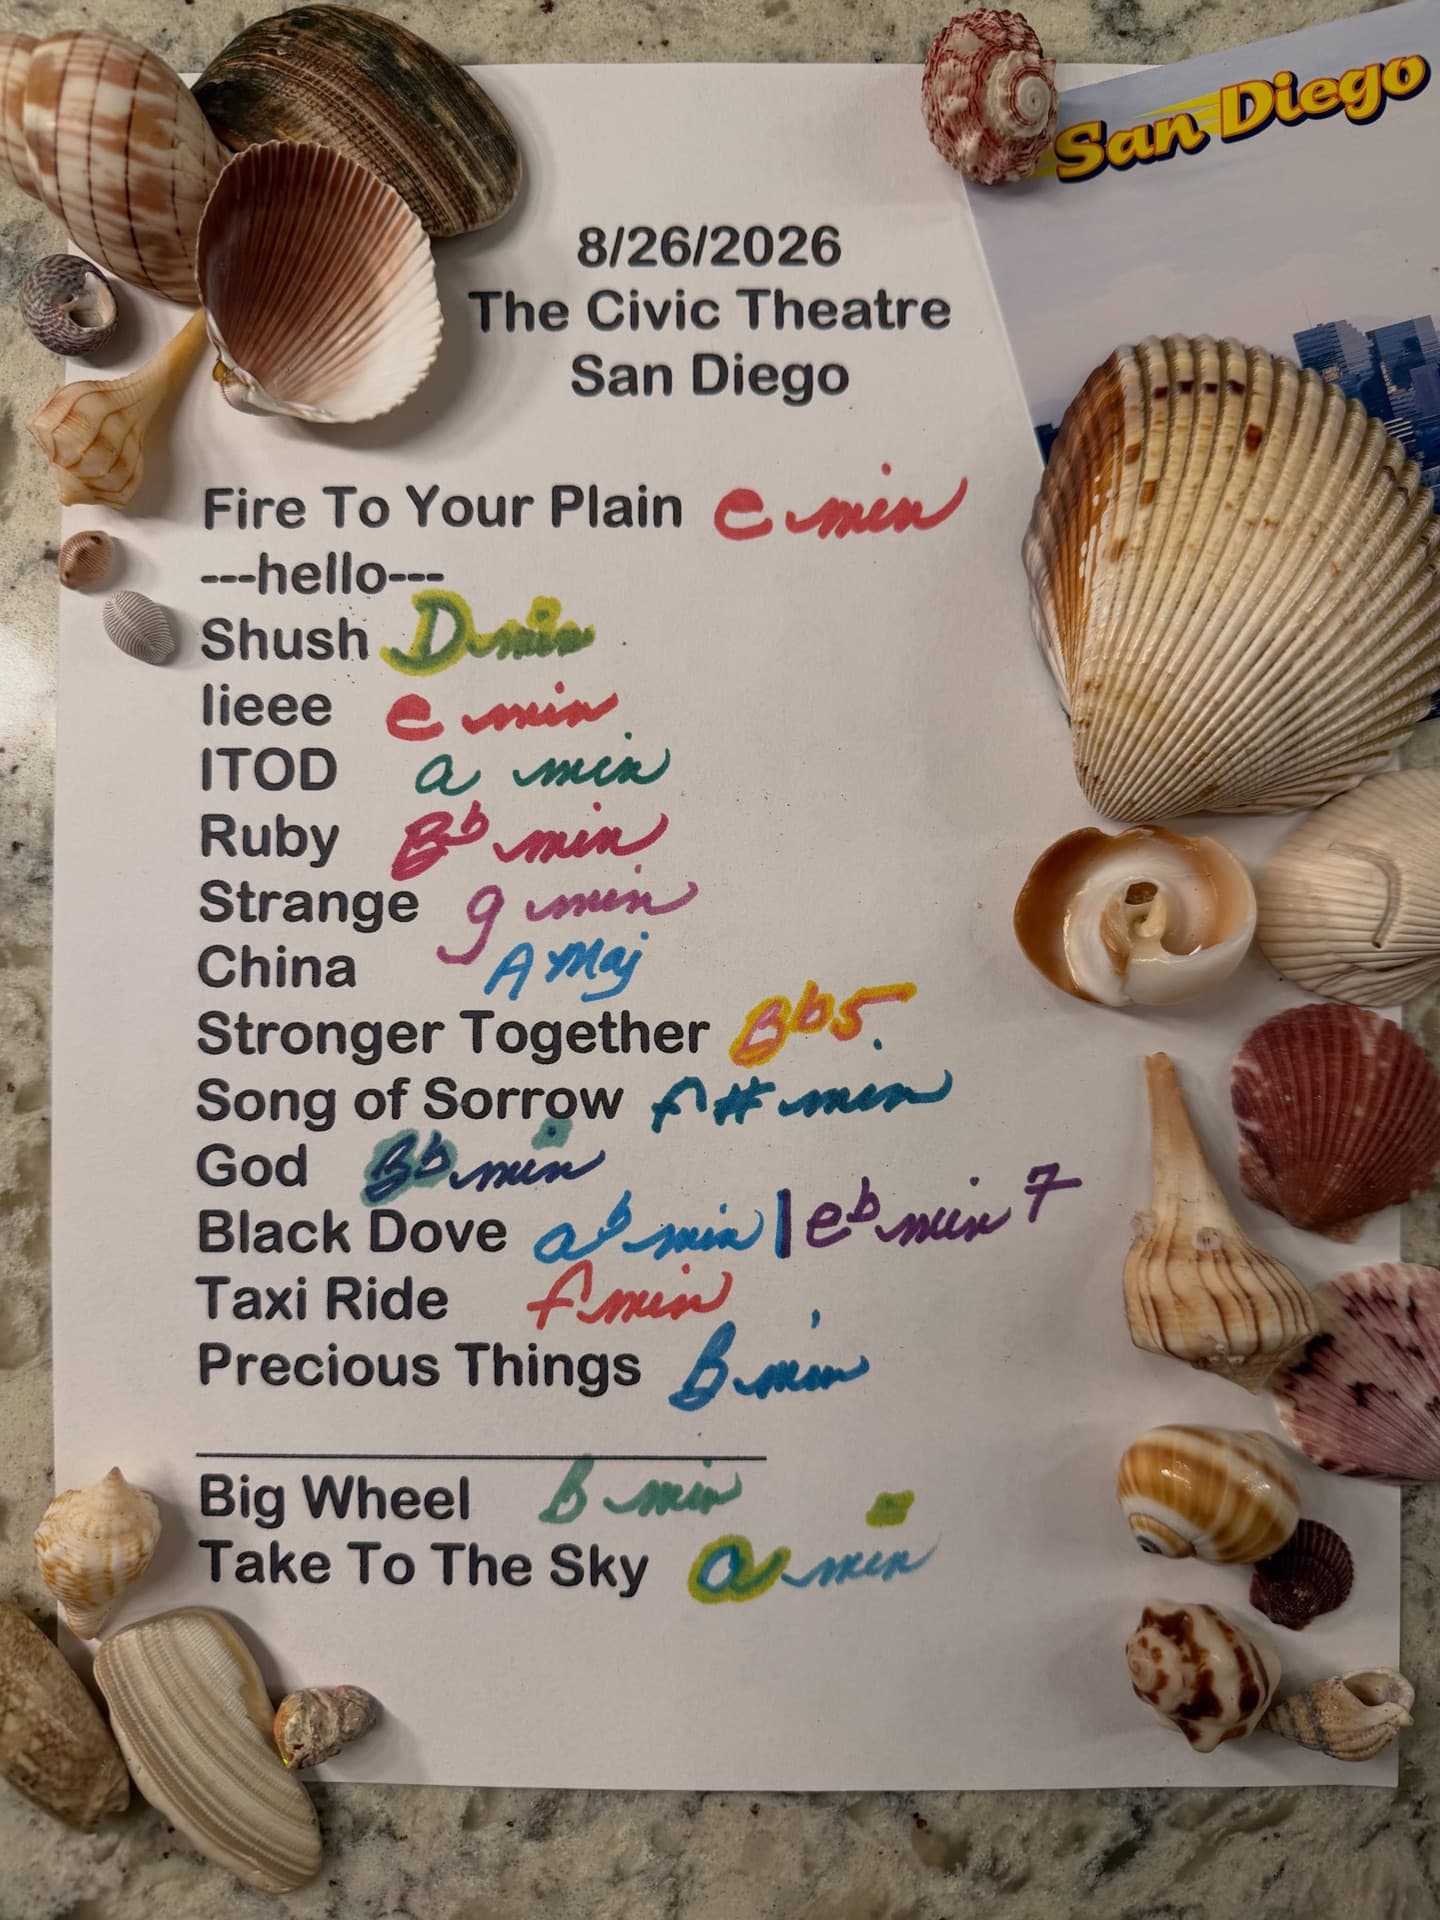 San Diego
8/26/2026
The Civic Theatre
San Diego
Fire To Your Plain e min
---hello---
Shush D min
Iieee e min
ITOD a min
Ruby Bb min
Strange g min
China A Maj
Stronger Together Bb5
Song of Sorrow f# min
God Bb min
Black Dove ab min | eb min 7
Taxi Ride f min
Precious Things B min
Big Wheel B min
Take To The Sky a min